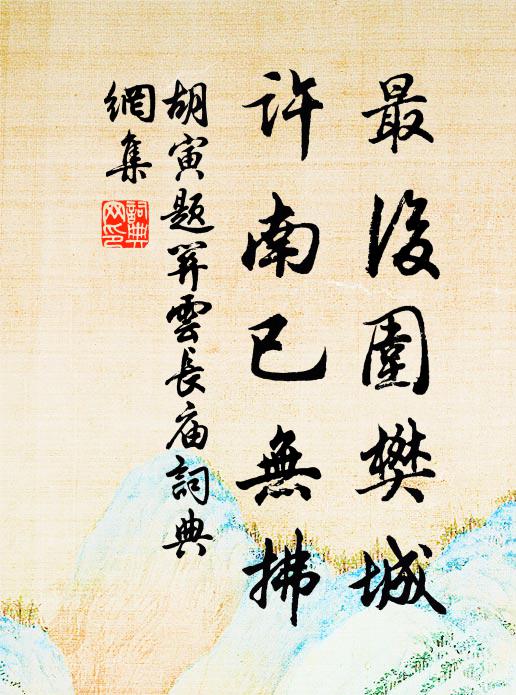 最後圍樊城
許南已無拂
胡寅題关雲長庙詞典
網集
詞典網印